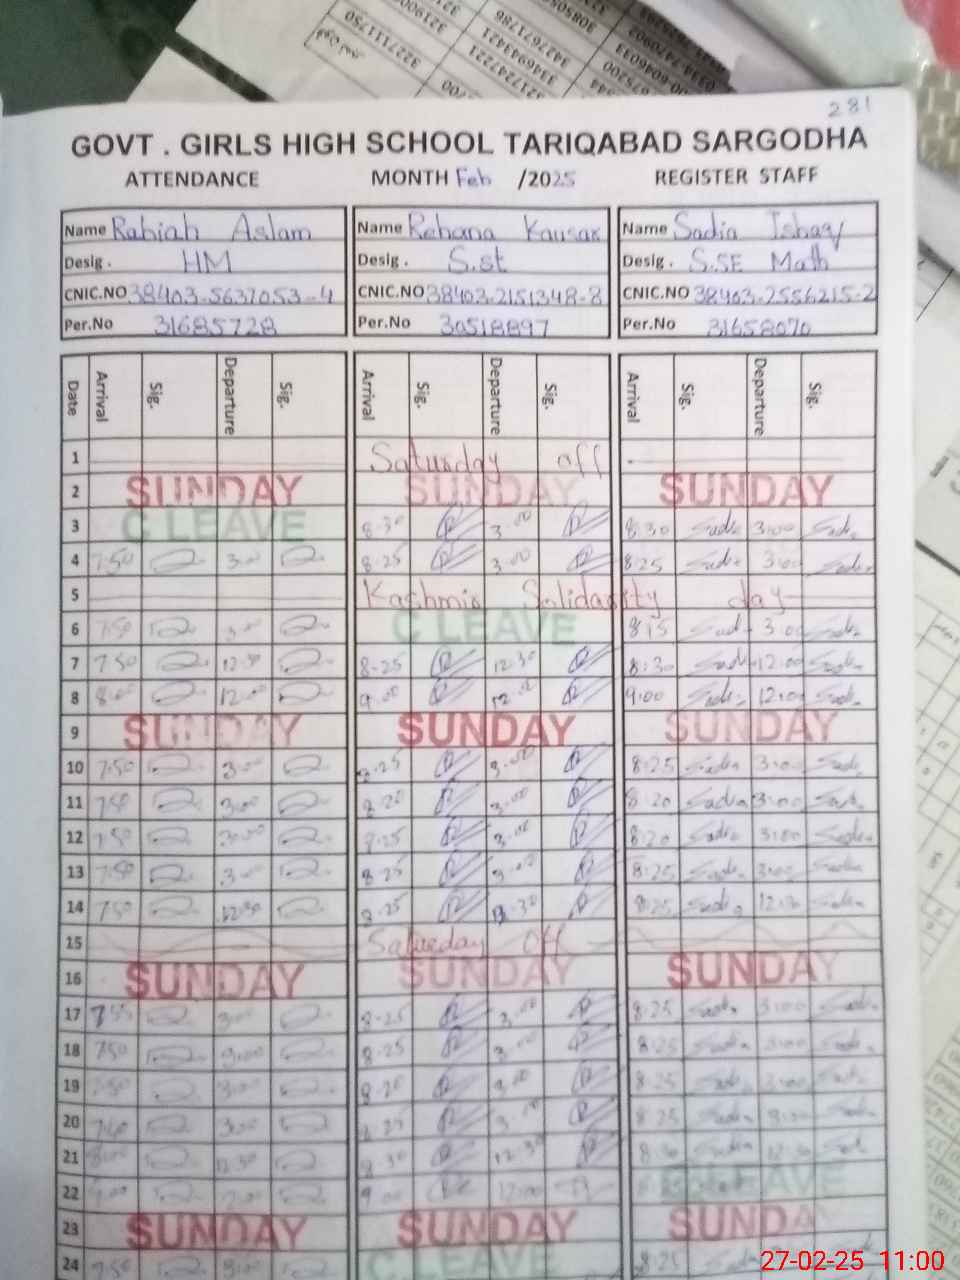 281
GOVT . GIRLS HIGH SCHOOL TARIQABAD SARGODHA
ATTENDANCE MONTH Feb /2025 REGISTER STAFF
Name Rabiah Aslam Name Rehana Kausar Name Sadia Ishaq
Desig . HM Desig . S.st Desig . S.SE Math
CNIC.NO 38403-5637053-4 CNIC.NO 38403-2151348-8 CNIC.NO 38403-2556215-2
Per.No 31685728 Per.No 30518897 Per.No 31658070
Date Arrival Sig. Departure Sig. Arrival Sig. Departure Sig. Arrival Sig. Departure Sig.
1 Saturday off
2 SUNDAY SUNDAY SUNDAY
3 C LEAVE 8-30 3.00 8:30 Sadia 3:00 Sadia
4 7:50 3:00 8-25 3.00 8:25 Sadia 3:00 Sadia
5 Kashmir Solidarity day
6 7:50 3:00 C LEAVE 8:15 Sadia 3:00 Sadia
7 7:50 12:30 8-25 12:30 8:30 Sadia 12:00 Sadia
8 8:00 12:00 9.00 12.00 9:00 Sadia 12:00 Sadia
9 SUNDAY SUNDAY SUNDAY
10 7:50 3:00 8-25 3.00 8:25 Sadia 3:00 Sadia
11 7:50 3:00 8-20 3.00 8:20 Sadia 3:00 Sadia
12 7:50 3:00 8-25 3.00 8:20 Sadia 3:00 Sadia
13 7:50 3:00 8-25 3.00 8:25 Sadia 3:00 Sadia
14 7:50 12:30 8-25 12.30 8:25 Sadia 12:30 Sadia
15 Saturday Off
16 SUNDAY SUNDAY SUNDAY
17 7:55 3:00 8-25 3.00 8:25 Sadia 3:00 Sadia
18 7:50 3:00 8-25 3.00 8:25 Sadia 3:00 Sadia
19 7:50 3:00 8-20 3.00 8:25 Sadia 3:00 Sadia
20 3:00 8-25 3.00 8:25 Sadia 3:00 Sadia
21 8:00 12:30 8-30 12:30 8:30 Sadia 12:30 Sadia
22 9:00 12:00 9.00 12:00 C LEAVE
23 SUNDAY SUNDAY SUNDAY
24 7:50 3:00 C LEAVE 8:25
27-02-25 11:00